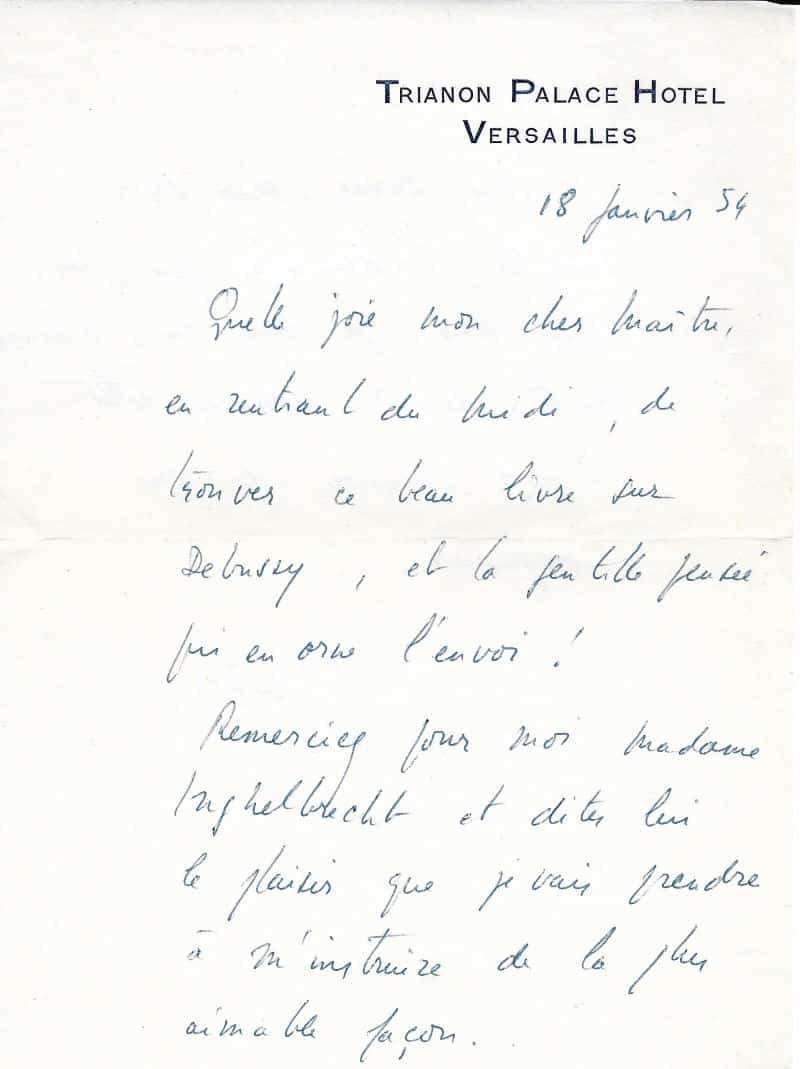 TRIANON PALACE HOTEL
VERSAILLES
18 Janvier 54
Quelle joie mon cher Maître,
en rentrant du Midi, de
trouver ce beau livre sur
Debussy, et la gentille pensée
qui en orne l'envoi !
Remerciez pour moi Madame
Inghelbrecht et dites lui
le plaisir que je vais prendre
à m'instruire de la plus
aimable façon.